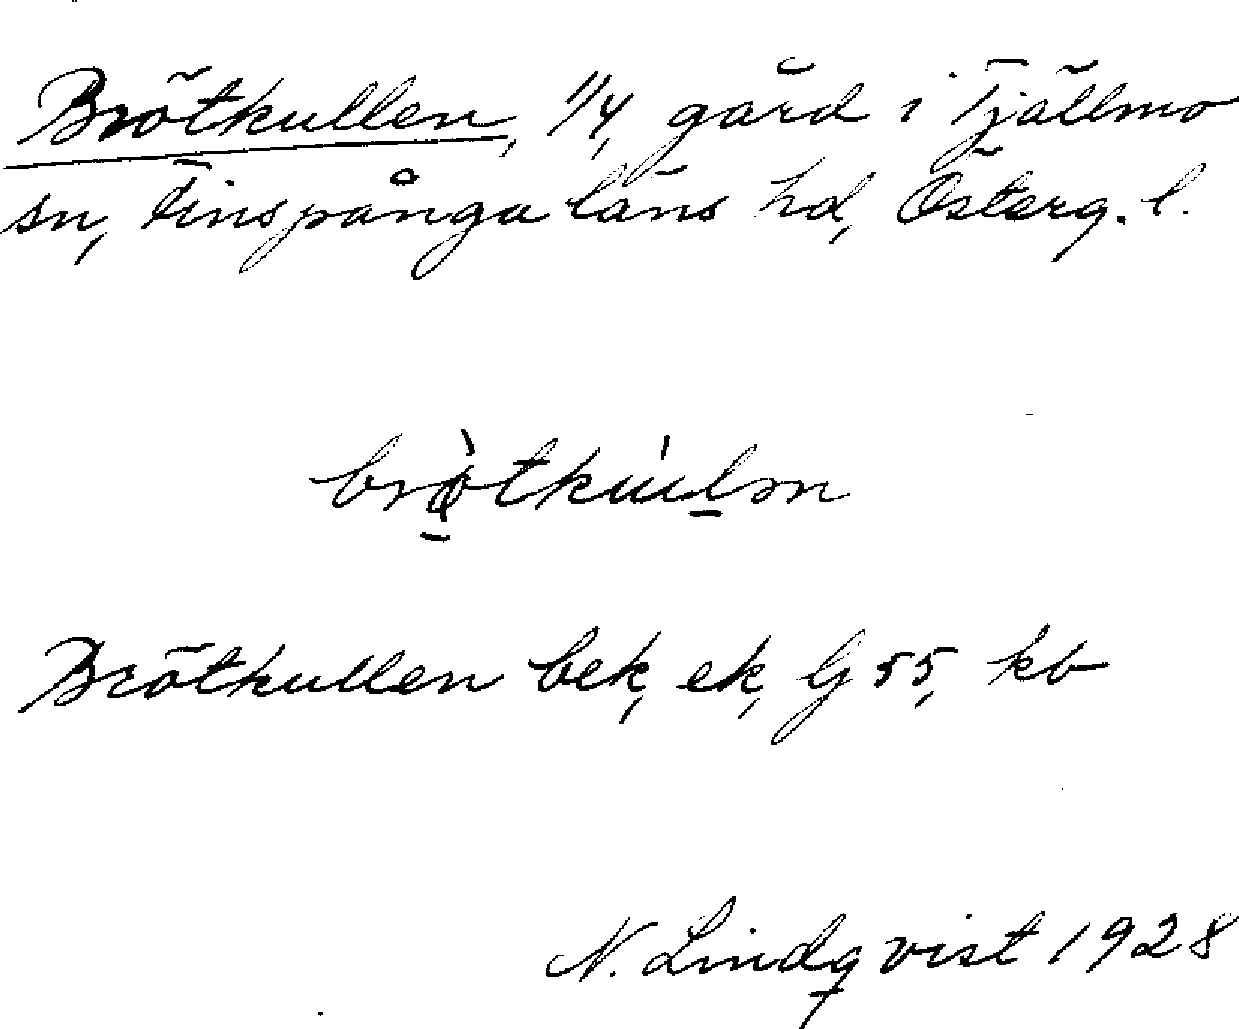 Brötkullen, 1/4, gård i Tjällmo
sn, Finspånga läns hd, Österg. l.
Brötkullen bek, ek, Gj 55, kb
N. Lindqvist 1928